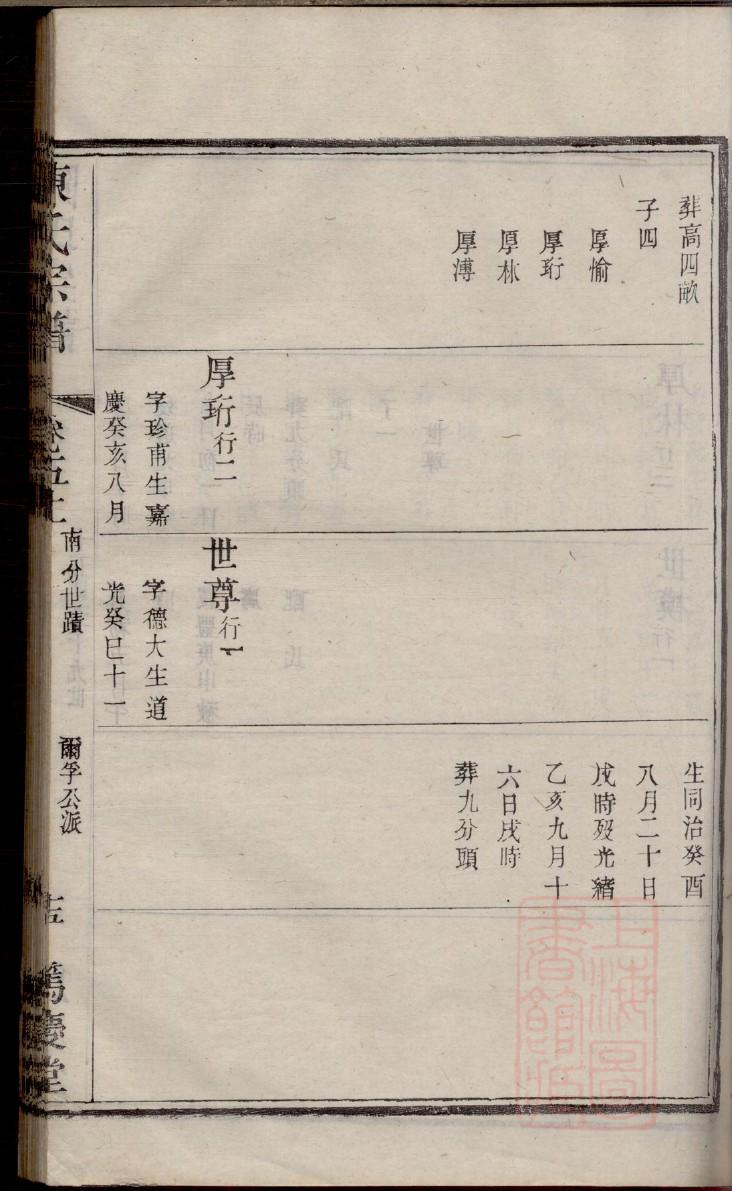 葬高四畝
子四
厚愉
厚珩
厚林
厚溥
厚珩行二
字珍甫生嘉
慶癸亥八月
世尊行一
字德大生道
光癸巳十一
生同治癸酉
八月二十日
戌時殁光緒
乙亥九月十
六日戌時
葬九分頭
陳氏宗譜
卷五上
南分世蹟
爾孚公派
篤慶堂
上海圖
書館所